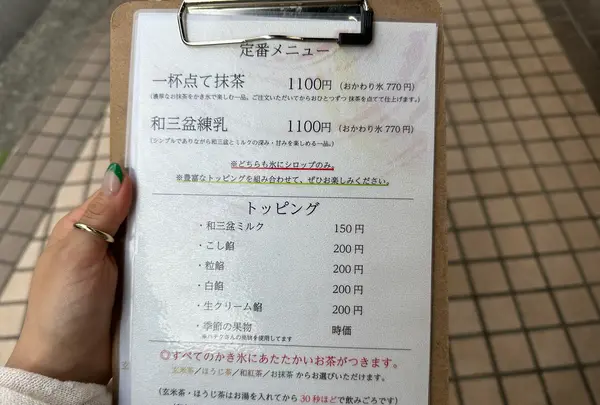 定番メニュー
一杯点て抹茶 1100円 (おかわり氷 770円)
(濃厚なお抹茶をかき氷で楽しむ一品。ご注文いただいてからおひとつずつ 抹茶を点てて仕上げます。)
和三盆練乳 1100円 (おかわり氷 770円)
(シンプルでありながら和三盆とミルクの深み・甘みを楽しめる一品。)
※どちらも氷にシロップのみ。
※豊富なトッピングを組み合わせて、ぜひお楽しみください。
トッピング
・和三盆ミルク 150円
・こし餡 200円
・粒餡 200円
・白餡 200円
・生クリーム餡 200円
・季節の果物 時価
を使用してます
◎すべてのかき氷にあたたかいお茶がつきます。
玄米茶／ほうじ茶／和紅茶／お抹茶 からお選びいただけます。
(玄米茶・ほうじ茶はお湯を入れてから 30秒ほどで飲みごろです)